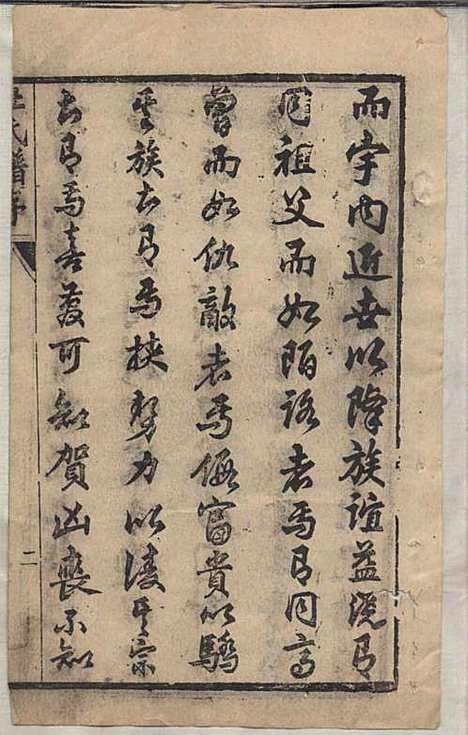 而宇内近世以降族誼益澆有
同祖父而如陌路者焉有同高
曾而如仇敵者焉富貴以驕
其族者有焉挾勢力以凌其宗
者有焉喜慶知賀凶喪不知
氏譜序
二